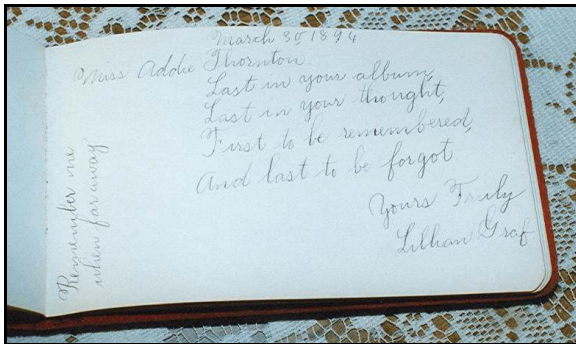 March 30 1894
Miss Addie Thornton.
Last in your album,
Last in your thought,
First to be remembered,
And last to be forgot
Yours Truly
Lillian Graf
Remember me
when far away